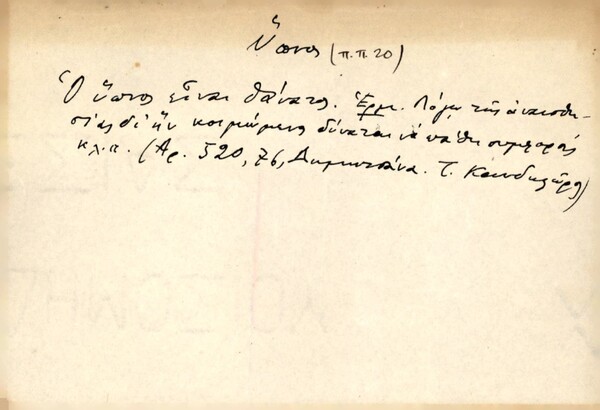 Ὕπνος (π.π 20)
Ὁ ὕπνος εἶναι θάνατος. Ἑρμ. Λόγῳ τῆς ἀναισθη-
σίας δι' ἣν κοιμώμενος δύναται νὰ πάθῃ συμφοράς
κ.λ.π. (Ἀρ. 520, 76, Δημητσάνα. Τ. Κανδηλώρης)